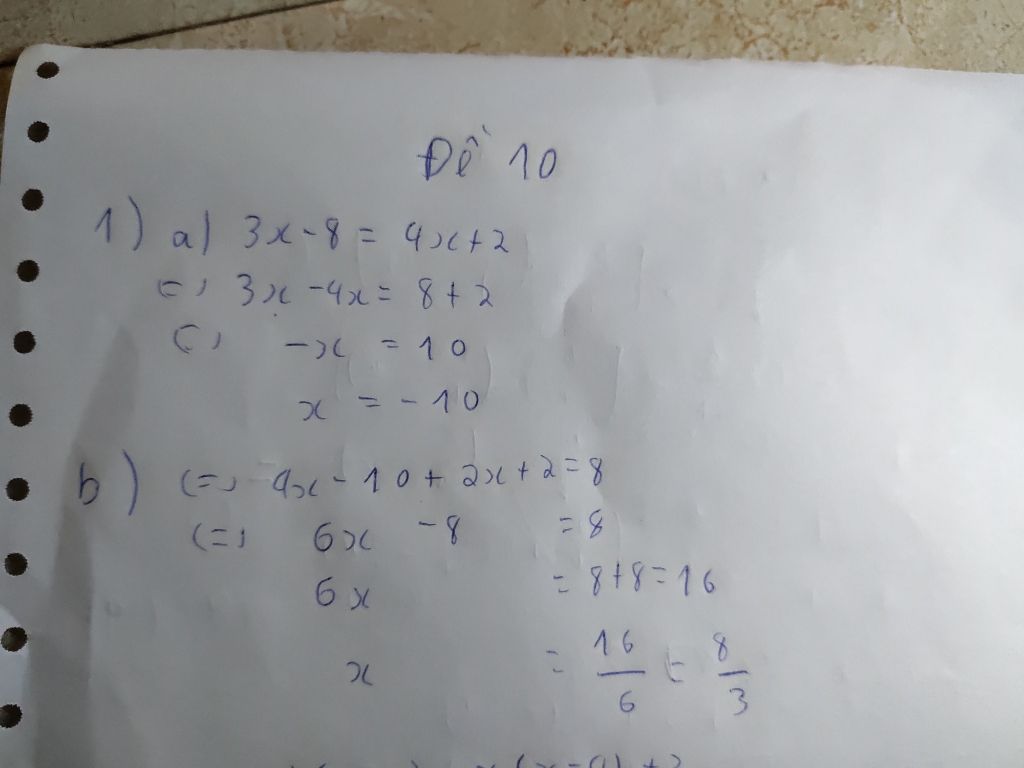 Đề 10
1) a) 3x - 8 = 4x + 2
<=> 3x - 4x = 8 + 2
<=> -x = 10
x = -10
b) <=> 4x - 10 + 2x + 2 = 8
<=> 6x - 8 = 8
6x = 8 + 8 = 16
x = 16/6 = 8/3